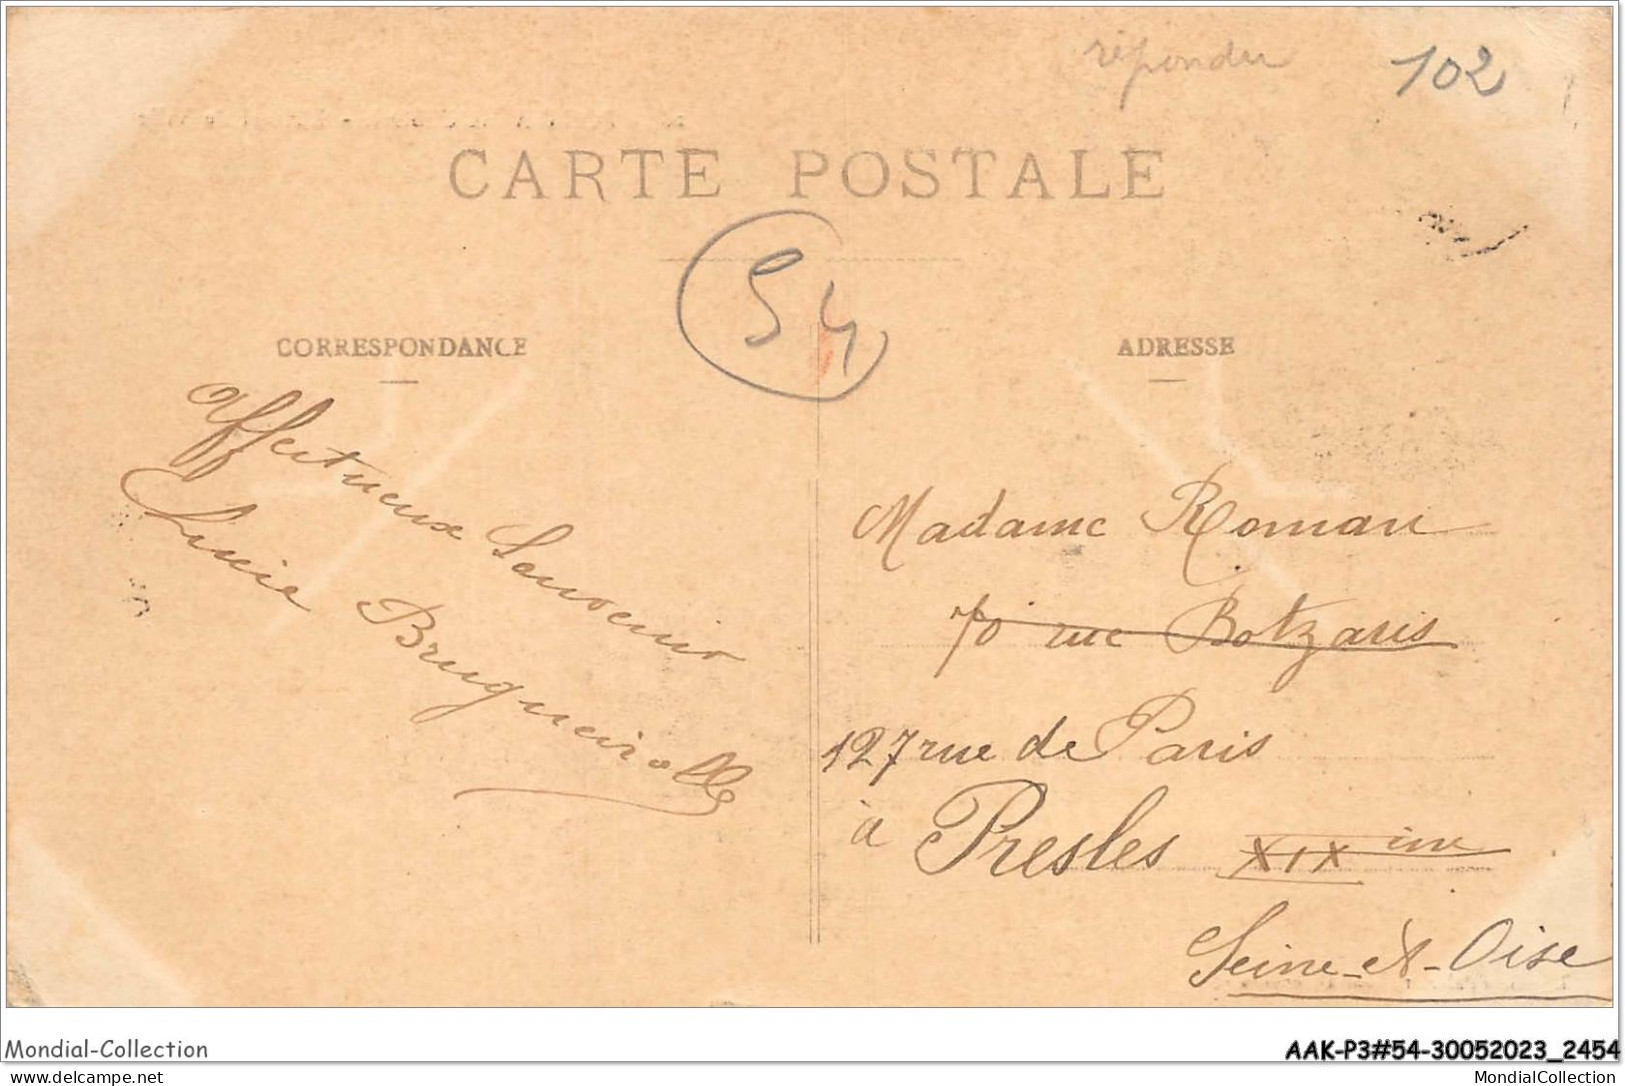 réponder
102
CARTE POSTALE
54
CORRESPONDANCE
ADRESSE
Affectueux Souvenir
Brugueirolle
Madame Roman
70 rue Botzaris
127 rue de Paris
à Presles XIX ème
Seine-et-Oise
Mondial-Collection
AAK-P3#54-30052023_2454
delcampe.net
MondialCollection